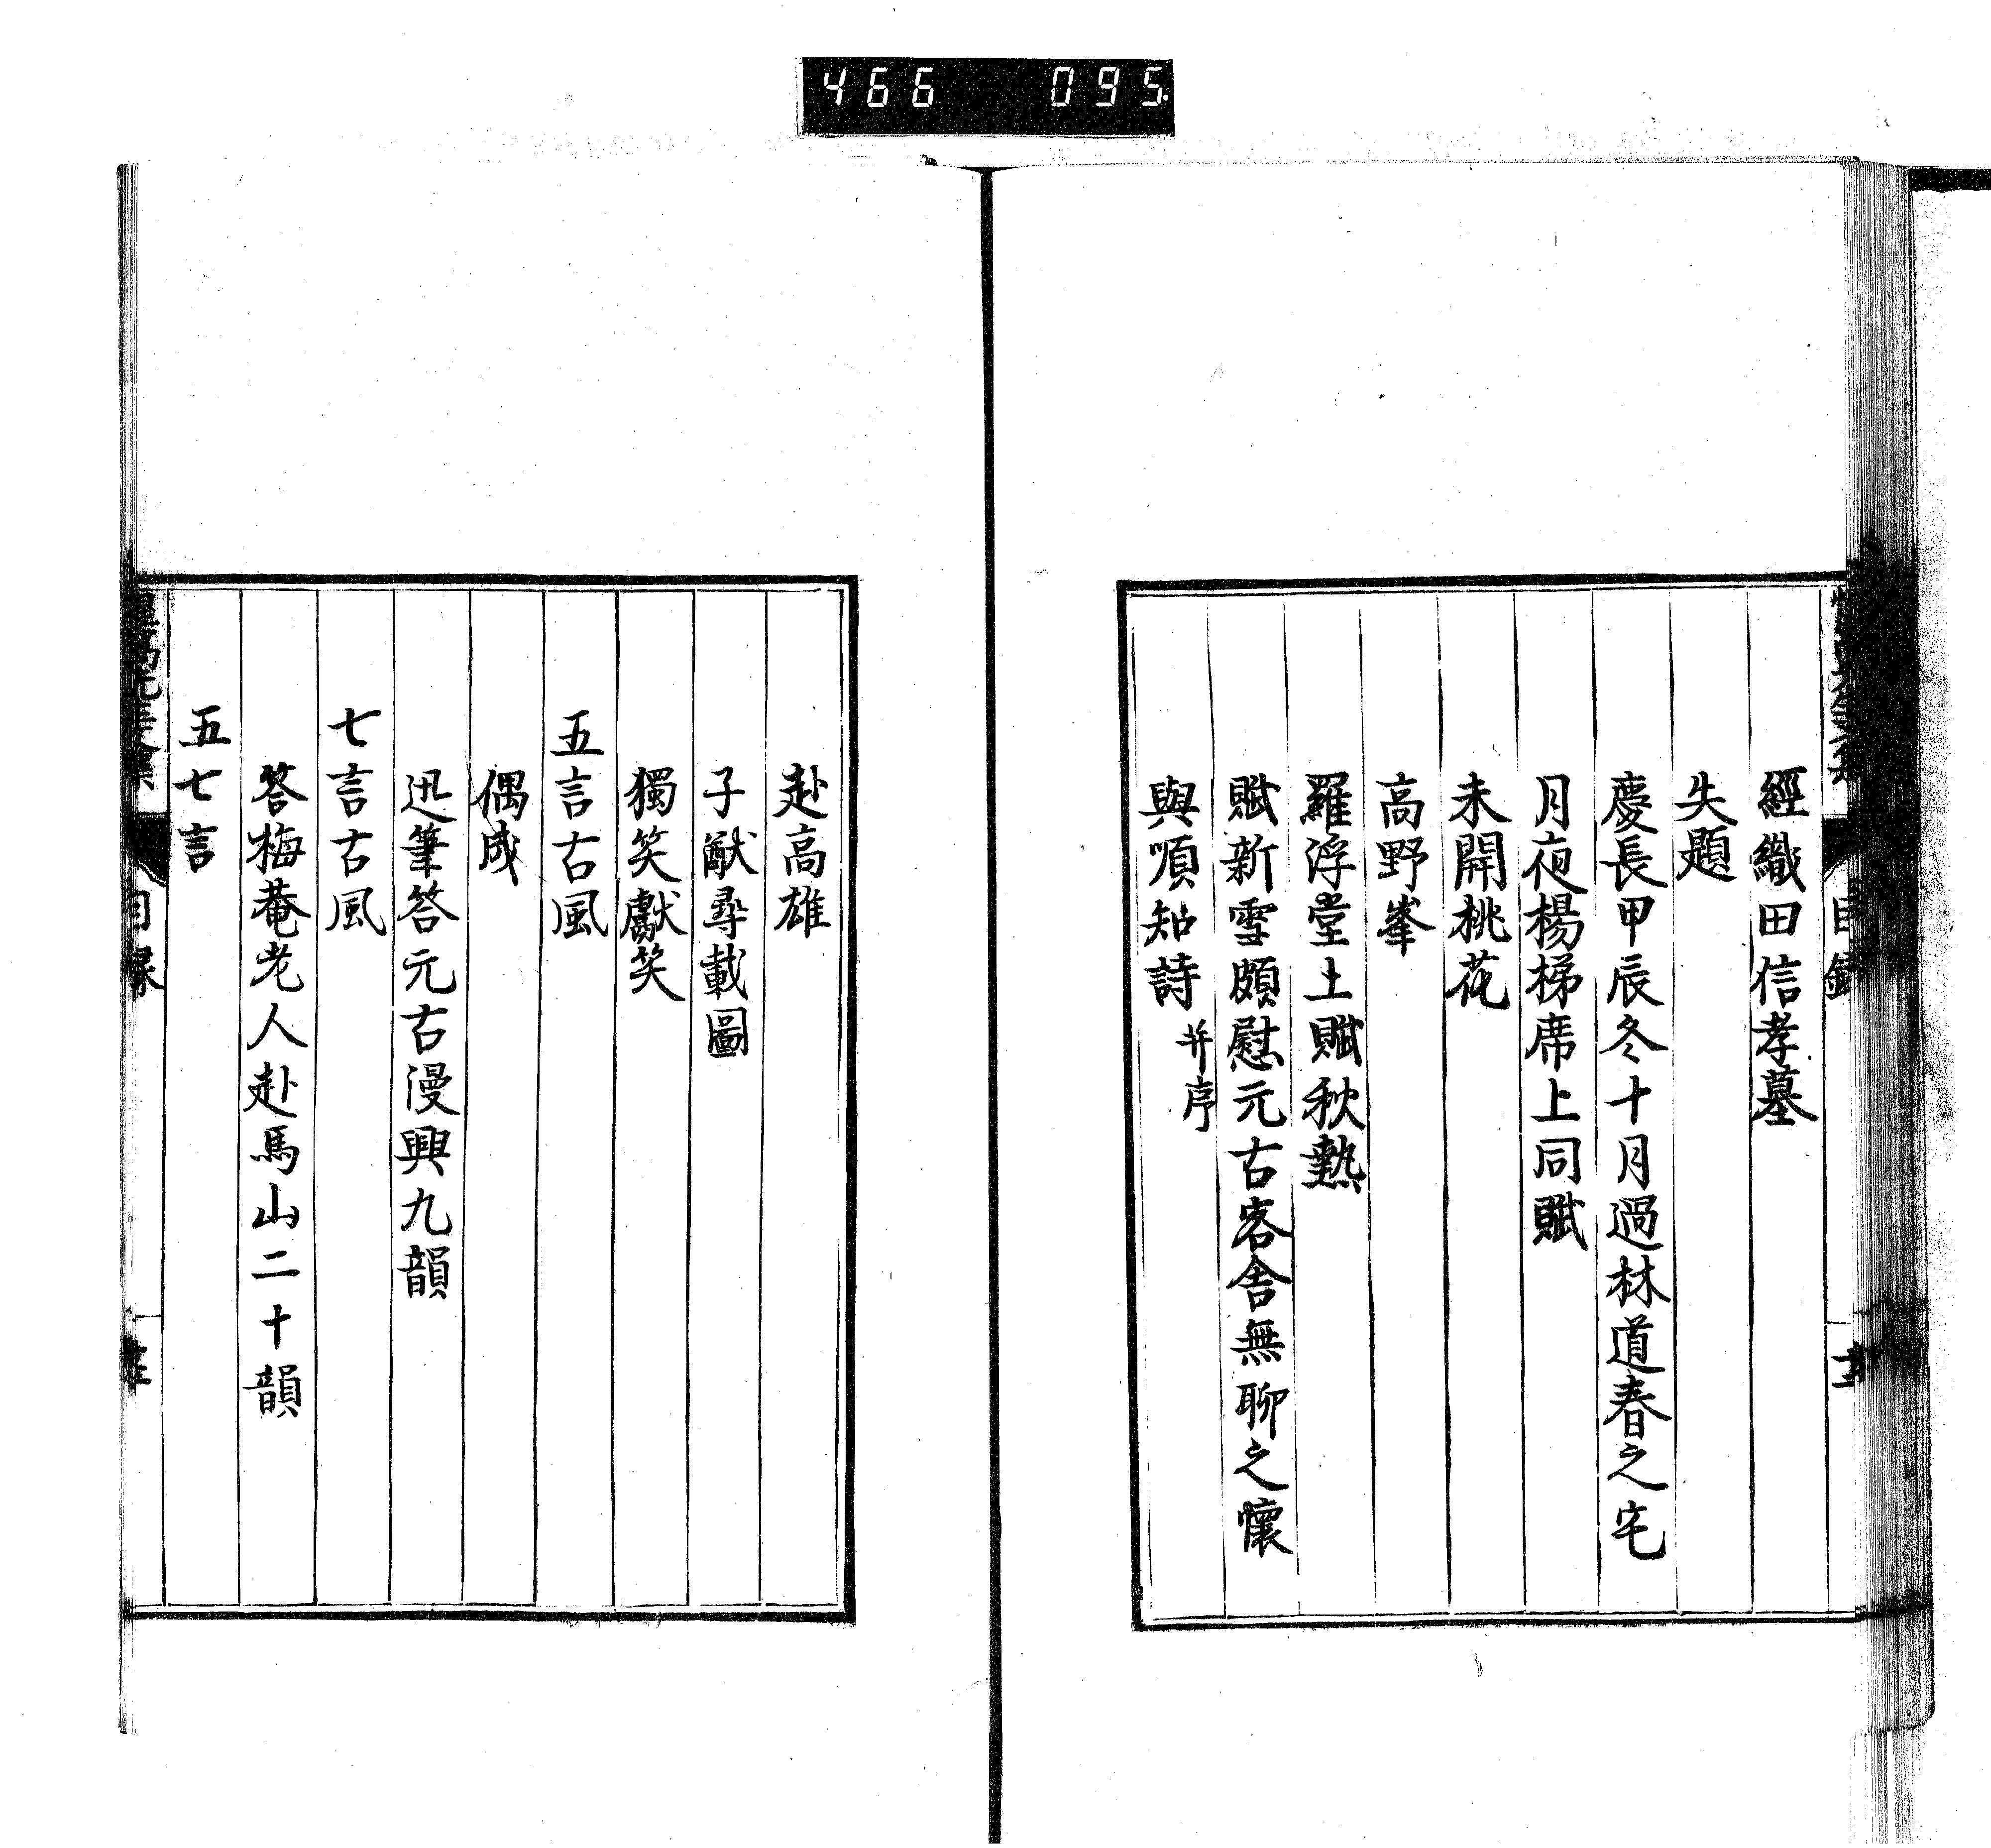 466 095
目錄
經織田信孝墓
失題
慶長甲辰冬十月過林道春之宅
月夜楊梯席上同賦
未開桃花
高野峯
羅浮堂上賦秋熱
賦新雪頗慰元古客舎無聊之懷
與順知詩 并序
赴高雄
子猷尋載圖
獨笑獻笑
五言古風
偶成
迅筆答元古漫興九韻
七言古風
答梅菴老人赴馬山二十韻
五七言
目録